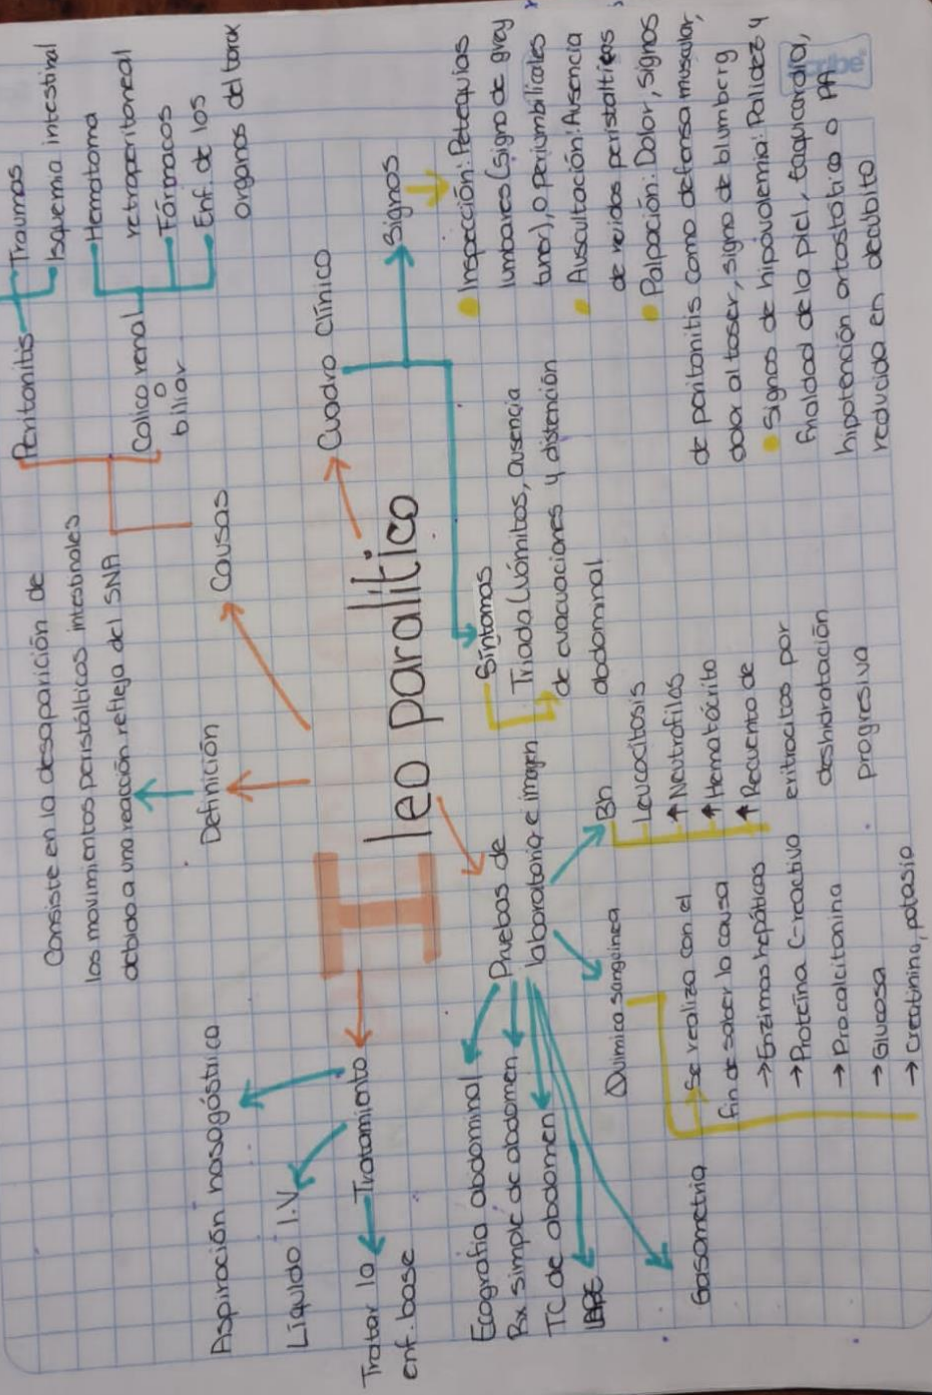 Consiste en la desaparición de
los movimientos peristálticos intestinales
debido a una reacción refleja del SNA
Definición
Causas
Peritonitis
Traumas
Isquemia intestinal
Colico renal
o
biliar
Hematoma
retroperitoneal
Fármacos
Enf. de los
organos del torax
Ileo paralítico
Cuadro Clínico
Signos
Inspección: Petequias
lumbares (signo de gray
tuner), o periumbilicales
Auscultación: Ausencia
de ruidos peristalticos
Palpación: Dolor, signos
de peritonitis como defensa muscular,
dolor al toser, signo de blumberg
Signos de hipovolemia: Palidez y
frialdad de la piel, taquicardia,
hipotención ortostática o PA
reducida en decubito
Síntomas
Triada (vómitos, ausencia
de evacuaciones y distención
abdominal
Pruebas de
laboratorio e imagen
Bh
Leucocitosis
↑ Neutrofilos
↑ Hematócrito
↑ Recuento de
eritrocitos por
deshidratación
progresiva
Quimica sanguinea
→ Se realiza con el
fin de saber la causa
→ Enzimas hepáticas
→ Proteína C-reactiva
→ Procalcitonina
→ Glucosa
→ Creatinina, potasio
Ecografia abdominal
Rx simple de abdomen
TC de abdomen
Gasometria
Tratamiento
Aspiración nasogástrica
Líquido I.V
Tratar la
enf. base